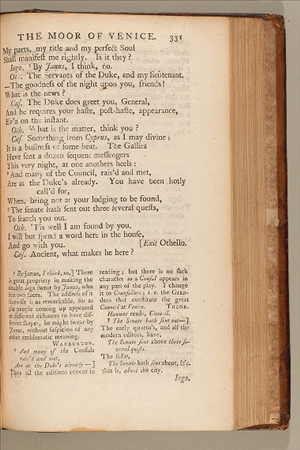 THE MOOR OF VENICE. 331
My parts, my title and my perfect Soul
Shall manifest me rightly. Is it they?
Iago. ¹ By Janus, I think, no.
Oth. The servants of the Duke, and my lieutenant.
—The goodness of the night upon you, friends!
What is the news?
Cas. The Duke does greet you, General,
And he requires your haste, post-haste, appearance,
Ev'n on the instant.
Oth. What is the matter, think you?
Cas. Something from Cyprus, as I may divine;
It is a business of some heat. The Gallies
Have sent a dozen sequent messengers
This very night, at one anothers heels:
² And many of the Council, rais'd and met,
Are at the Duke's already. You have been hotly
call'd for,
When, being not at your lodging to be found,
³ The senate hath sent out three several quests,
To search you out.
Oth. 'Tis well I am found by you.
I will but spend a word here in the house,
And go with you. [Exit Othello.
Cas. Ancient, what makes he here?
¹ By Janus, I think, no.] There
a great propriety in making the
double Iago swear by Janus, who
has two faces. The address of it
likewise is as remarkable, for as
the people coming up appeared
at different distances to have different
shapes, he might swear by
Janus, without suspicion of any
other emblematic meaning.
WARBURTON.
² And many of the Consuls
rais'd and met,
Are at the Duke's already—]
Thus all the editions concur in
reading; but there is no such
character as a Consul appears in
any part of the play. I change
it to Counsellors; i. e. the Grandees
that constitute the great
Council at Venice. THEOB.
Hanmer reads, Council.
³ The Senate hath sent out—]
The early quarto's, and all the
modern editors, have,
The Senate sent above three several
quests.
The folio,
The Senate hath sent about, &c.
that is, about the city.
Iago.